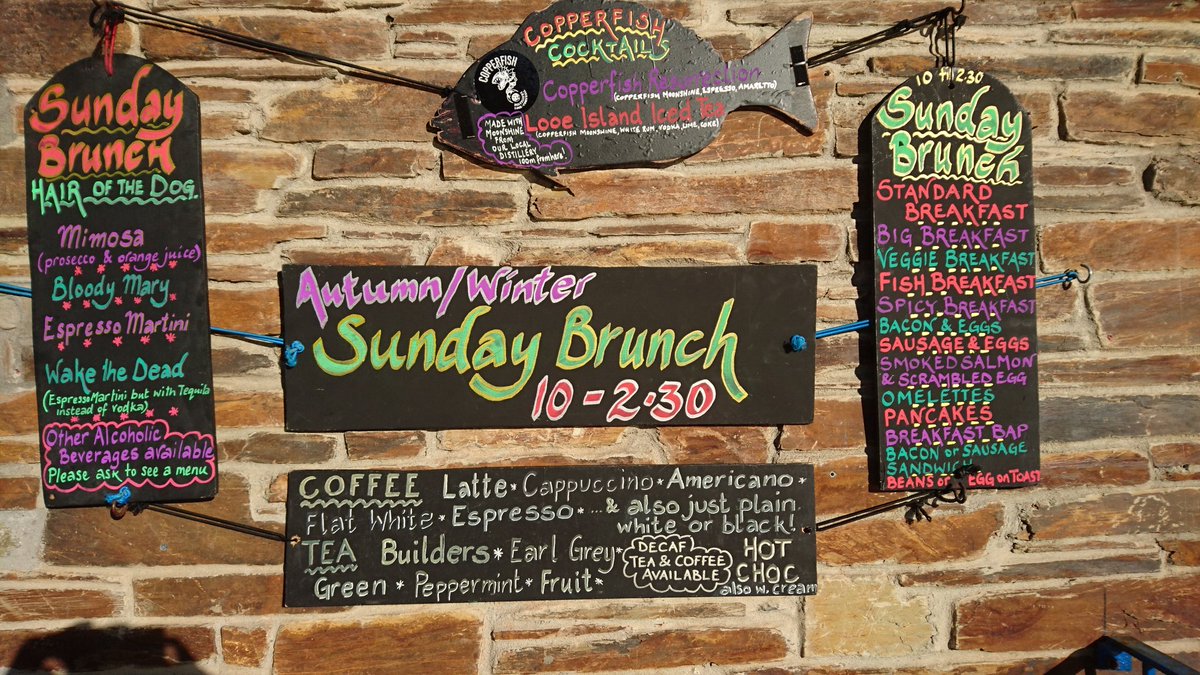 Sunday
Brunch
HAIR OF THE DOG
Mimosa
(prosecco & orange juice)
Bloody Mary
Espresso Martini
Wake the Dead
(Espresso Martini but with Tequila
instead of vodka)
Other Alcoholic
Beverages available
Please ask to see a menu
COPPERFISH
COCKTAILS
COPPERFISH
Copperfish Resurrection
(COPPERFISH MOONSHINE, ESPRESSO, AMARETTO)
Looe Island Iced Tea
(COPPERFISH MOONSHINE, WHITE RUM, VODKA, LIME, COKE)
MADE WITH
MOONSHINE
FROM
OUR LOCAL
DISTILLERY
100m from here!
Autumn/Winter
Sunday Brunch
10-2.30
COFFEE Latte * Cappuccino * Americano *
Flat White * Espresso * ...& also just plain
white or black!
TEA Builders * Earl Grey *
Green * Peppermint * Fruit *
DECAF
TEA & COFFEE
AVAILABLE
HOT
CHOC
also w. cream
10 - 2.30
Sunday
Brunch
STANDARD
BREAKFAST
BIG BREAKFAST
VEGGIE BREAKFAST
FISH BREAKFAST
SPICY BREAKFAST
BACON & EGGS
SAUSAGE & EGGS
SMOKED SALMON
& SCRAMBLED EGG
OMELETTES
PANCAKES
BREAKFAST BAP
BACON or SAUSAGE
SANDWICH
BEANS or EGG ON TOAST